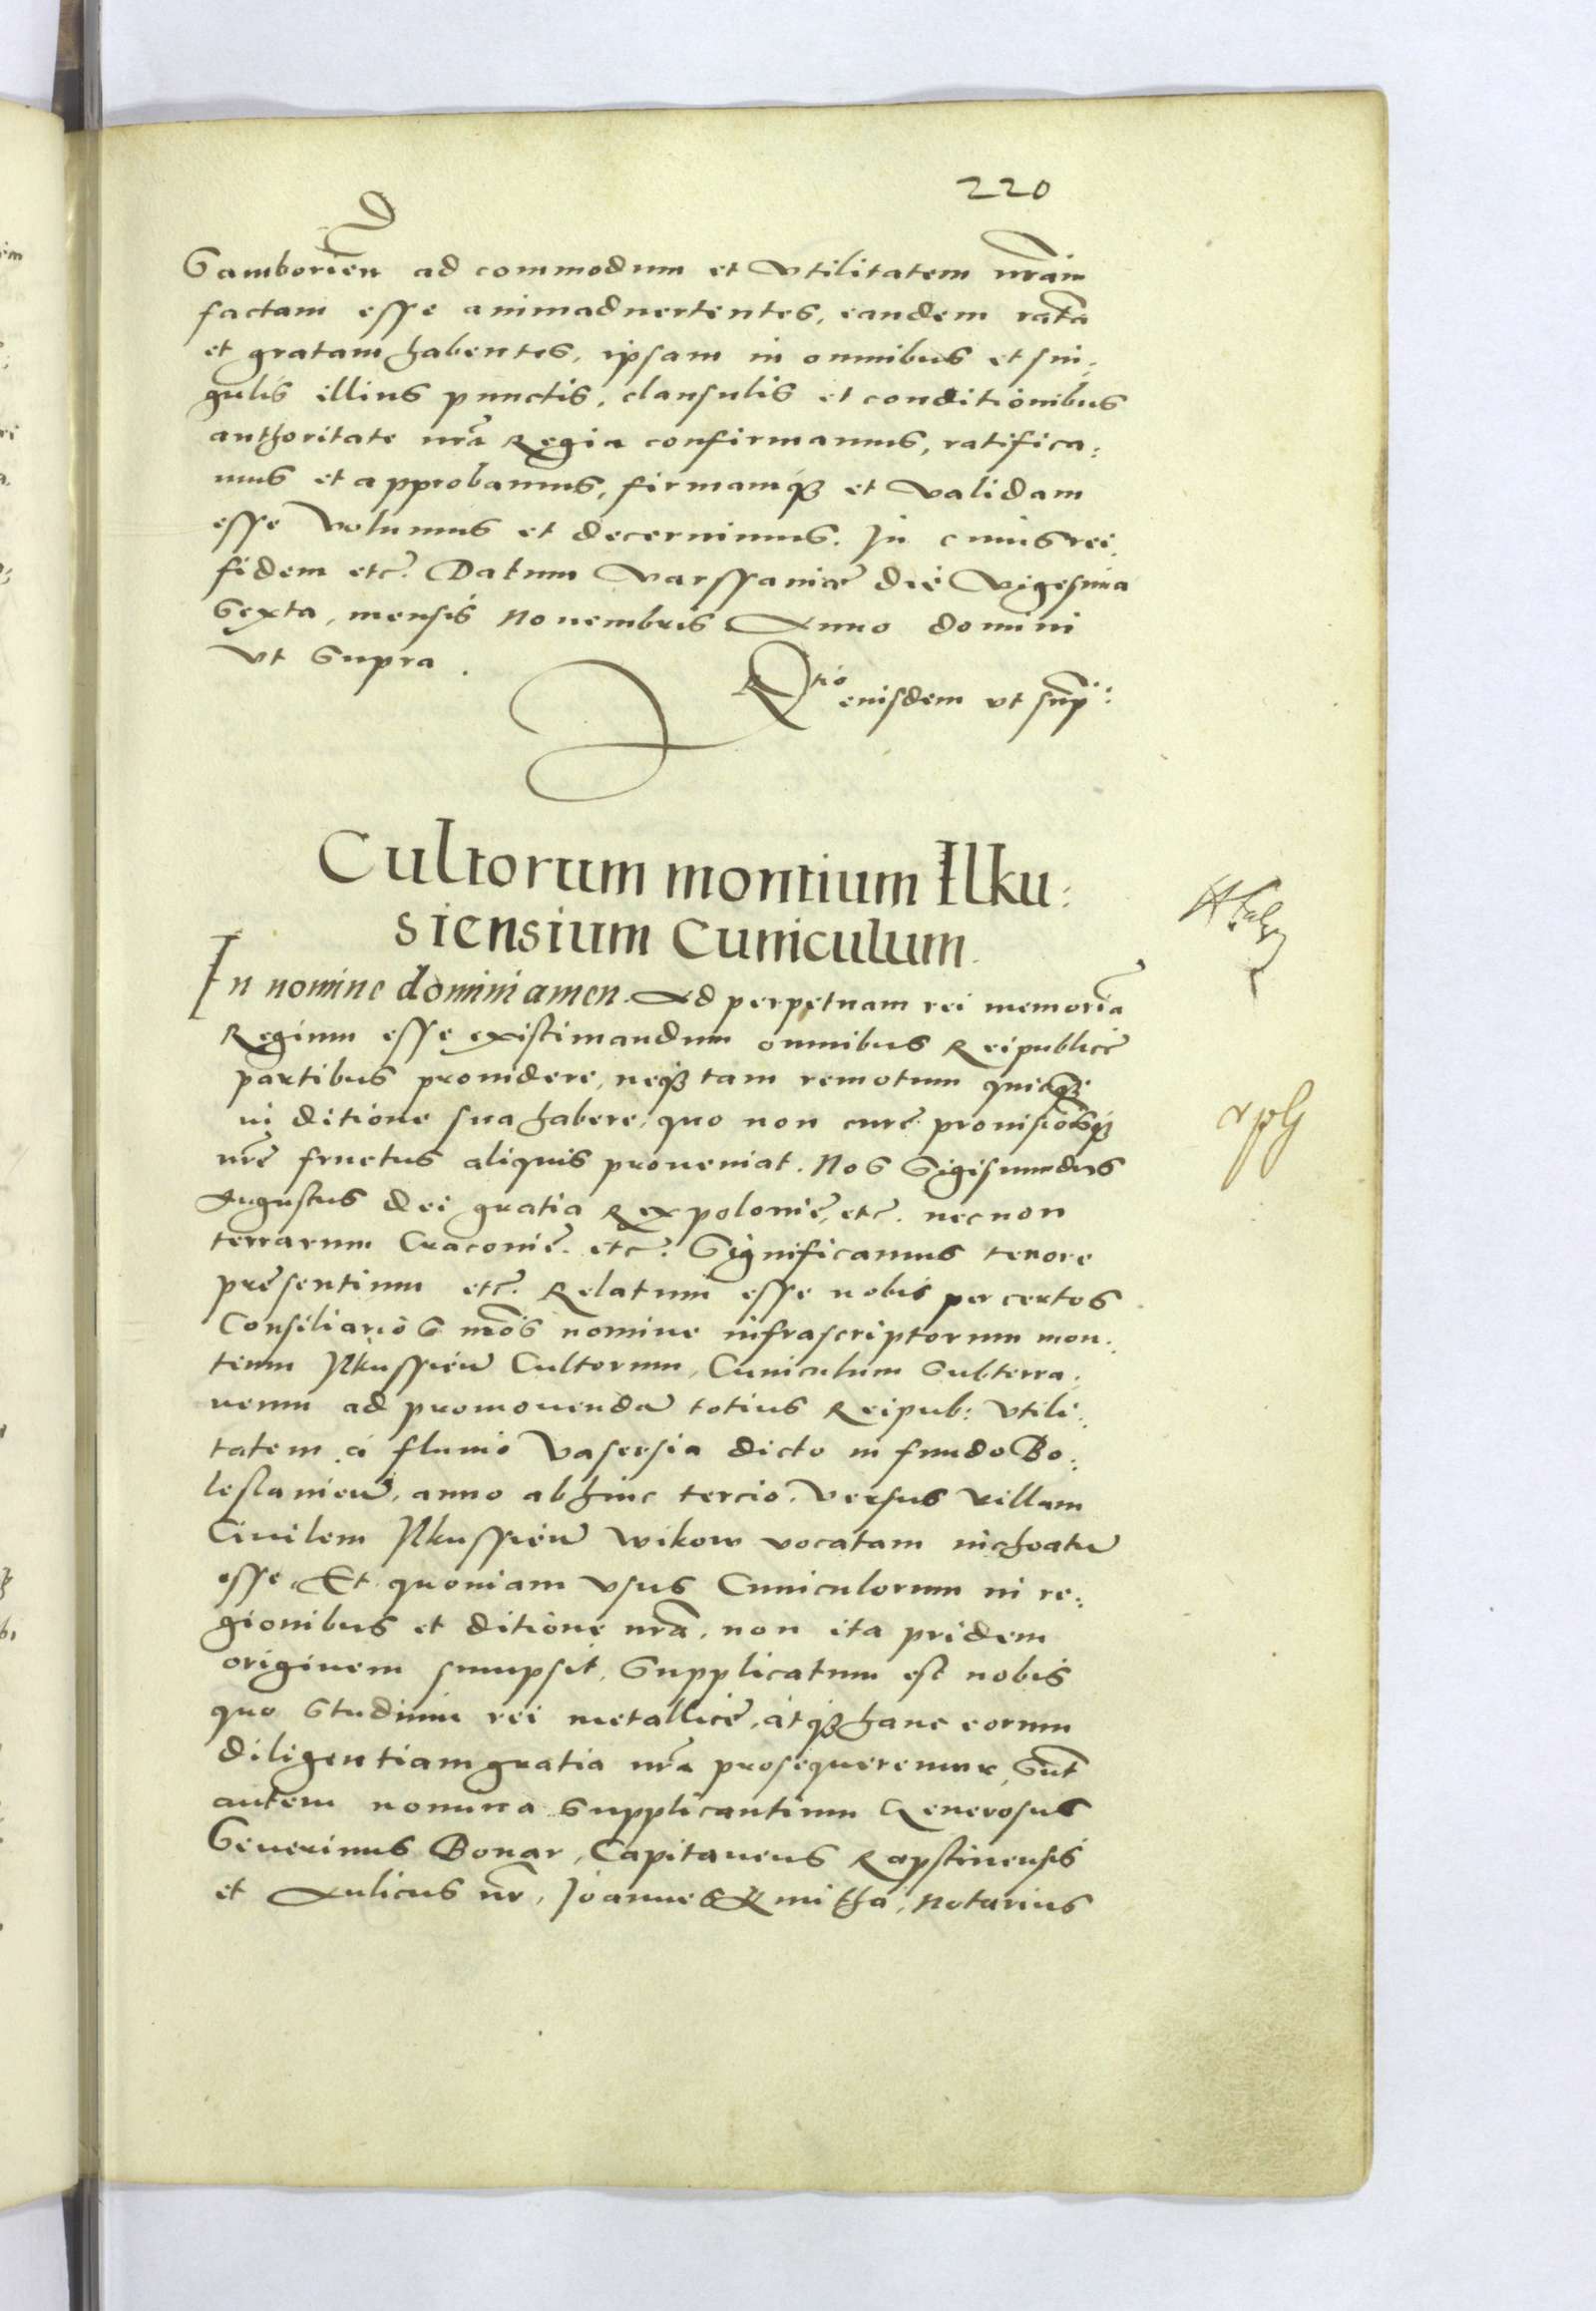 220
Samborien̄ ad commodum et vtilitatem nr̄am
factam esse animaduertentes, eandem ratā
et gratam habentes, ipsam in omnibus et sin:
gulis illius punctis, clausulis et conditionibus
authoritate nr̄a Regia confirmamus, ratifica:
mus et approbamus, firmamqȝ et validam
esse volumus et decernimus. In cuius rei
fidem etc̄. Datum Varssauiæ die Vigesima
Sexta, mensis Nouembris Anno domini
vt Supra.
Rtio eiusdem vt sup̄:
Cultorum montium Ilku:
siensium Cuniculum.
In nomine domini amen. Ad perpetuam rei memoriā
Regium esse existimandum omnibus Reipublicę
partibus prouidere, neqȝ tam remotum quicqȝ
in ditione sua habere, quo non curę prouisiōisqȝ
nr̄ę fructus aliquis proueniat. Nos Sigismundus
Augustus dei gratia Rex polonię, etc̄. necnon
terrarum Cracouię. etc̄. Significamus tenore
pręsentium etc̄. Relatum esse nobis per certos
Consiliarios nr̄os nomine infrascriptorum mon:
tium Ilkussien̄ Cultorum, Cuniculum Subterra:
neum ad promouendā totius Reipub: vtili:
tatem a fluuio Vasersia dicto in fundo Bo:
leslauien̄, anno abhinc tercio, versus villam
Ciuilem Ilkussien̄ Wikow vocatam inchoatū
esse. Et quoniam vsus Cuniculorum in re:
gionibus et ditione nr̄a, non ita pridem
originem sumpsit, Supplicatum est nobis
quo Studium rei metallicę, atqȝ hanc eorum
diligentiam gratia nr̄a prosequeremur, Sūt
autem nomina Supplicantium Generosus
Seuerinus Bonar, Capitaneus Rapstinensis
et Aulicus nr̄, Joannes Kmitha, Notarius